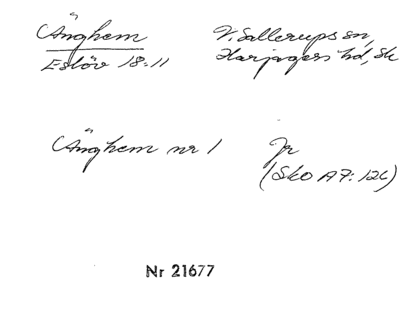 Änghem V. Sallerups sn,
Eslöv 18:11 Harjagers hd, Sk
Änghem nr 1 Jr
(Sko A7:126)
Nr 21677